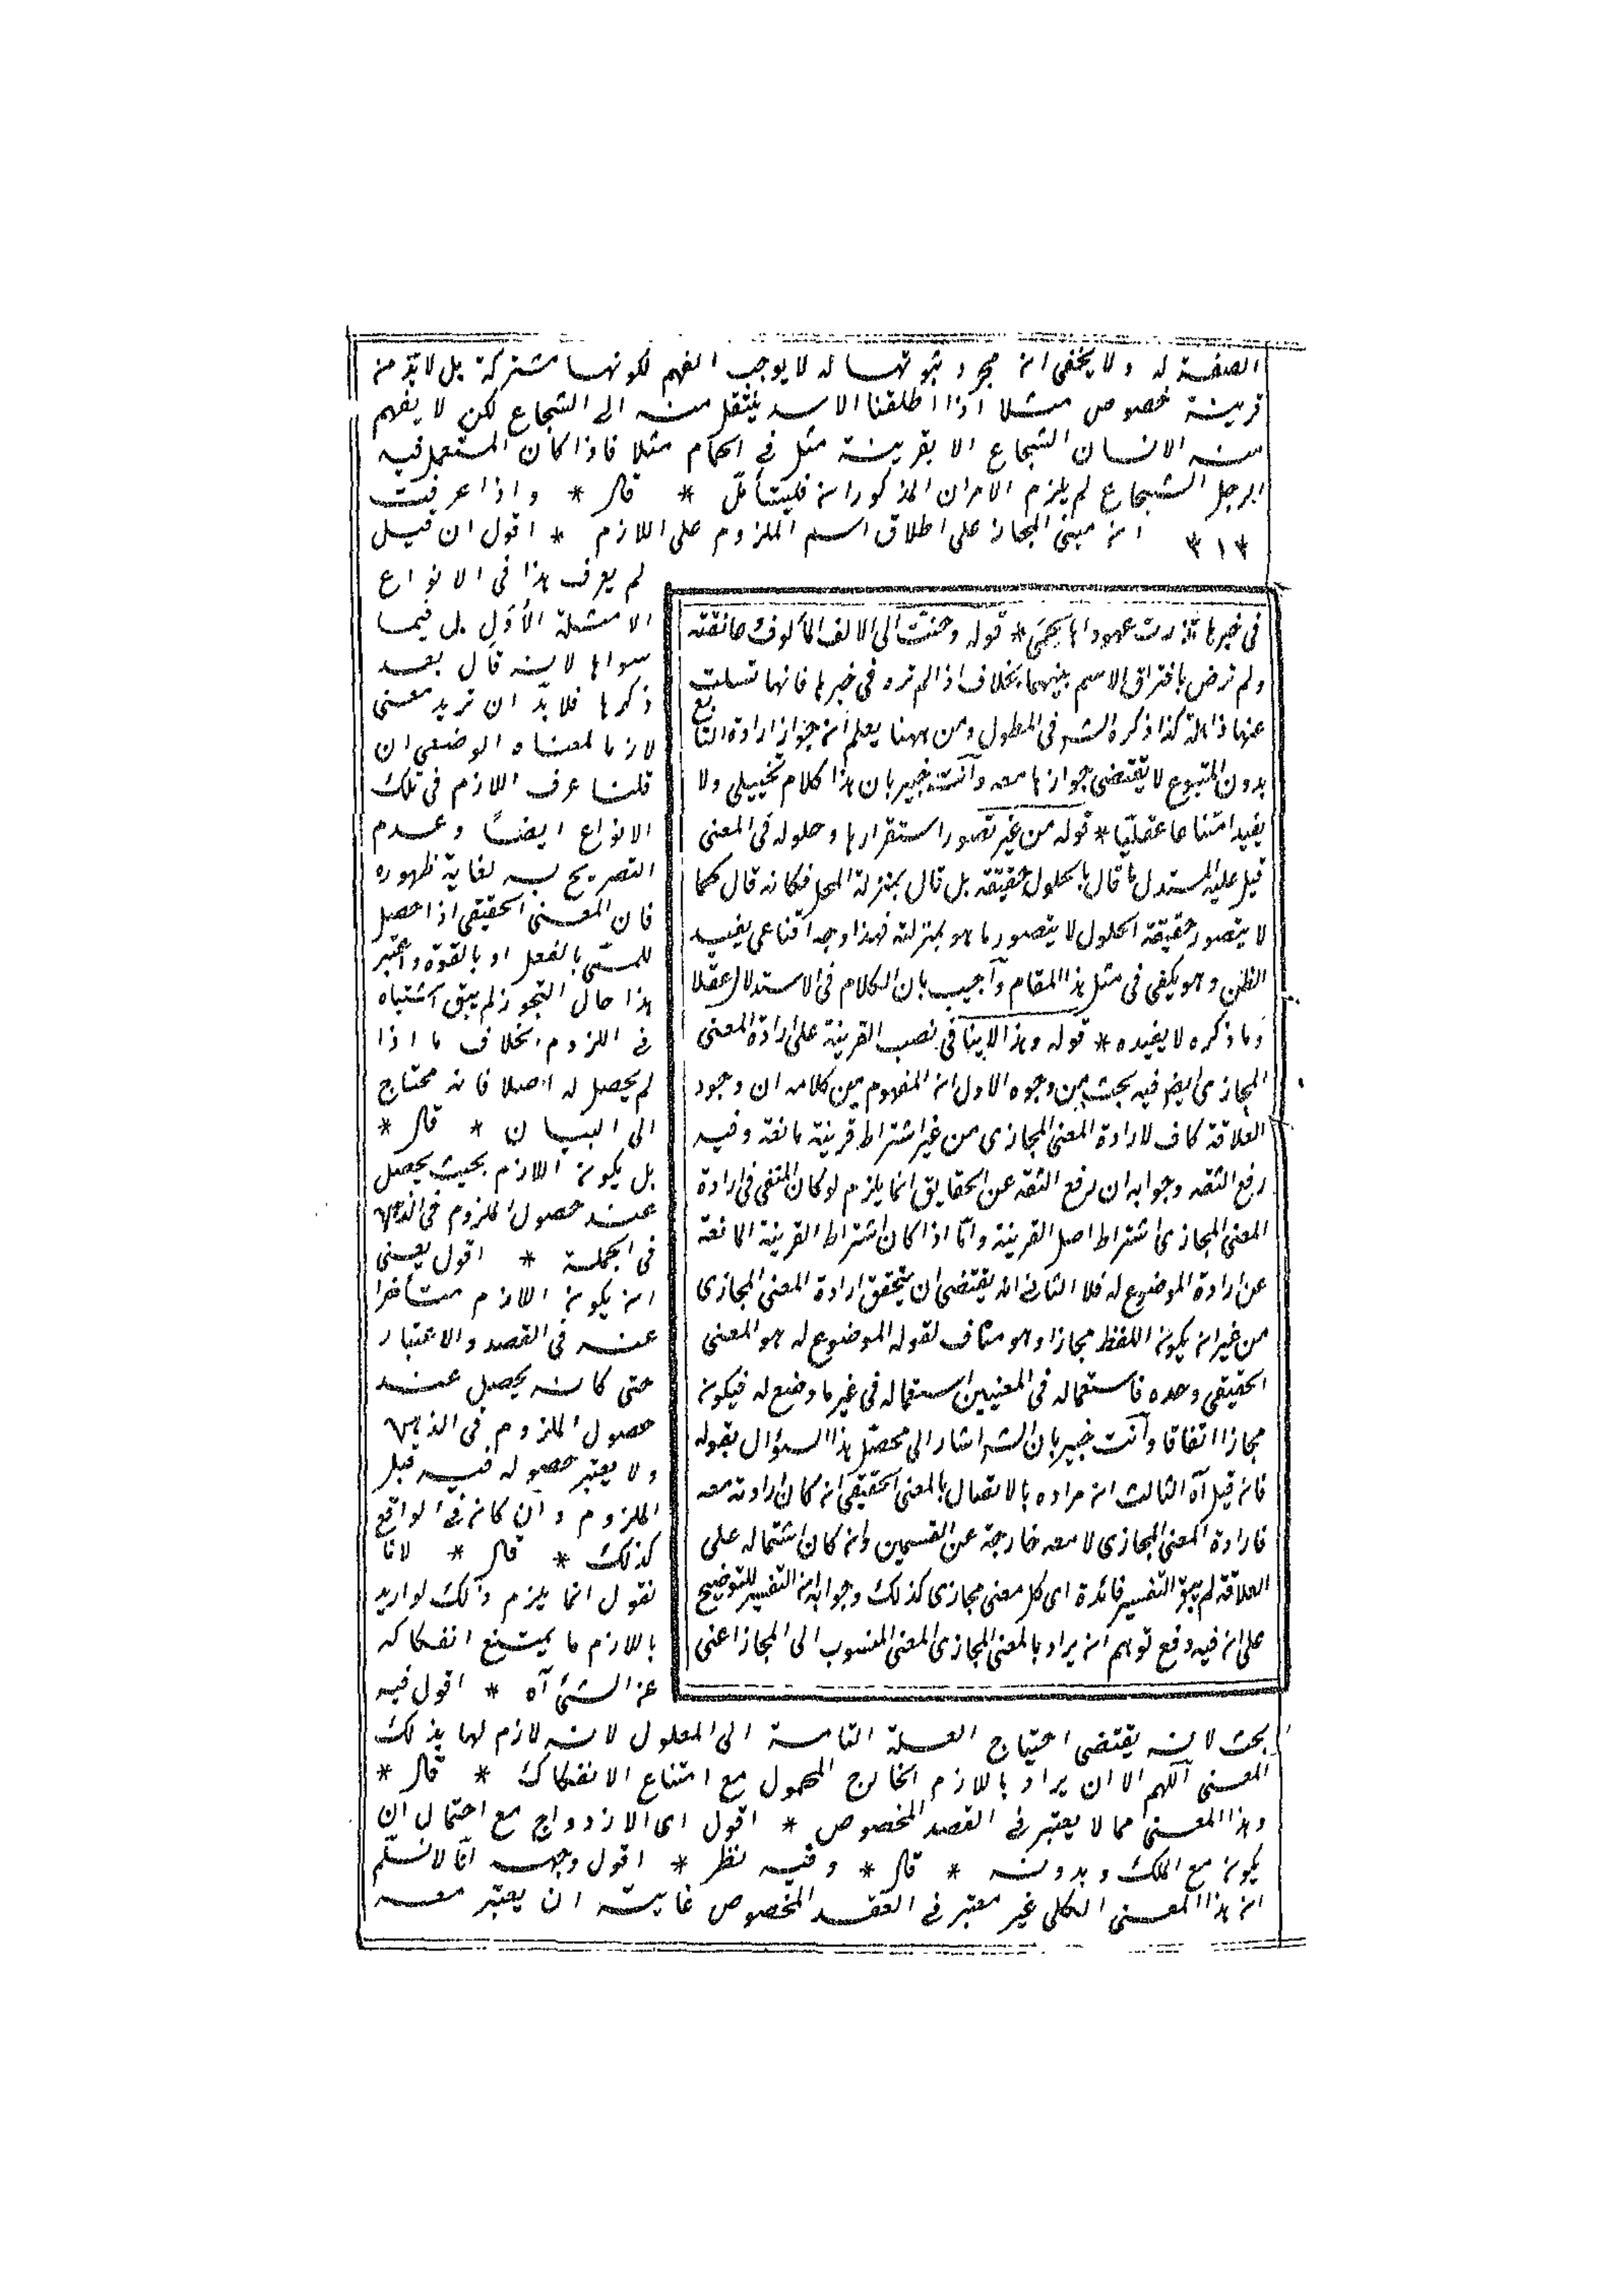 الصفة له ولا يخفى ان مجرد ثبوتها له لا يوجب الفهم لكونها مشتركة بل لا بد من
قرينة خصوص مثلا اذا اطلقنا الاسد ينتقل منه الى الشجاع لكن لا يفهم
منه الانسان الشجاع الا بقرينة مثل فى الحمام مثلا فاذا كان المستعمل فيه
الرجل الشجاع لم يلزم الامران المذكوران فليتأمل * قال * واذا عرفت
ان مبنى المجاز على اطلاق اسم الملزوم على اللازم * اقول ان قيل
﴿٣١﴾
لم يعرف هذا فى الانواع
الامثلة الأول بل فيما
سواها لانه قال بعد
ذكرها فلا بد ان تريد معنى
لازما لمعناه الوضعى ان
قلنا عرف اللازم فى تلك
الانواع ايضا وعدم
التصريح به لغاية ظهوره
فان المعنى الحقيقى اذا حصل
للمسمى بالفعل او بالقوة واعتبر
هذا حال التجوز لم يبق اشتباه
فى اللزوم بخلاف ما اذا
لم يحصل له اصلا فانه محتاج
الى البيان * قال *
بل يكون اللازم بحيث يحصل
عند حصول الملزوم فى الذهن
فى الجملة * اقول يعنى
ان يكون اللازم متأخرا
عنه فى القصد والاعتبار
حتى كانه يحصل عند
حصول الملزوم فى الذهن
ولا يعتبر حصوله فيه قبل
الملزوم وان كان فى الواقع
كذلك * قال * لانا
نقول انما يلزم ذلك لو اريد
باللازم ما يمتنع انفكاكه
عن الشئ آه * اقول فيه
بحث لانه يقتضى احتياج العلة التامة الى المعلول لانه لازم لها بذلك
المعنى اللهم الا ان يراد باللازم الخارج المحمول مع امتناع الانفكاك * قال *
وهذا المعنى مما لا يعتبر فى القصد المخصوص * اقول اى الازدواج مع احتمال ان
يكون مع الملك وبدونه * قال * وفيه نظر * اقول وجهه انا لا نسلم
ان هذا المعنى الكلى غير معتبر فى العقد المخصوص غايته ان يعتبر معه
فى غيرها تذرت عهودا بالحمى * قوله وحنت الى الالف المألوف صانقته
ولم ترض بافتراق الاسم بينهما بخلاف اذا لم ترد فى غيرها فانها تسلت
عنها ذاهلة كذا ذكره الشر فى المطول ومن ههنا يعلم ان جواز ارادة التابع
بدون المتبوع لا تقتضى جوازها معه وانت خبير بان هذا كلام تخييلى ولا
يفيد امتناعا عقليا * قوله من غير تصور استقرارها وحلوله فى المعنى
قيل عليه المستدل ما قال بالحلول حقيقة بل قال بمنزلة المحل فكانه قال كما
لا يتصور حقيقة الحلول لا يتصور ما هو بمنزلته فهذا وجه اقناعى يفيد
الظن وهو يكفى فى مثل هذا المقام واجيب بان الكلام فى الاستدلال عقلا
وما ذكره لا يفيده * قوله وهذا لا ينافى نصب القرينة على ارادة المعنى
المجازى ايضا فيه بحث من وجوه الاول ان المفهوم من كلامه ان وجود
العلاقة كاف لارادة المعنى المجازى من غير اشتراط قرينة مانعة وفيه
رفع الثقة وجوابه ان رفع الثقة عن الحقايق انما يلزم لو كان المنفى فى ارادة
المعنى المجازى اشتراط اصل القرينة واما اذا كان اشتراط القرينة المانعة
عن ارادة الموضوع له فلا الثانى انه يقتضى ان يتحقق ارادة المعنى المجازى
من غير ان يكون اللفظ مجازا وهو مناف لقوله الموضوع له هو المعنى
الحقيقى وحده فاستعماله فى المعنيين استعماله فى غير ما وضع له فيكون
مجازا اتفاقا وانت خبير بان الشر اشار الى محصل هذا السؤال بقوله
فان قيل آه الثالث ان مراده بالاتصال بالمعنى الحقيقى ان كان ارادته معه
فارادة المعنى المجازى لا معه خارجة عن القسمين وان كان اشتماله على
العلاقة لم يبق التفسير فائدة اى كل معنى مجازى كذلك وجوابه ان التفسير للتوضيح
على ان فيه دفع توهم ان يراد بالمعنى المجازى المعنى المنسوب الى المجاز اعنى